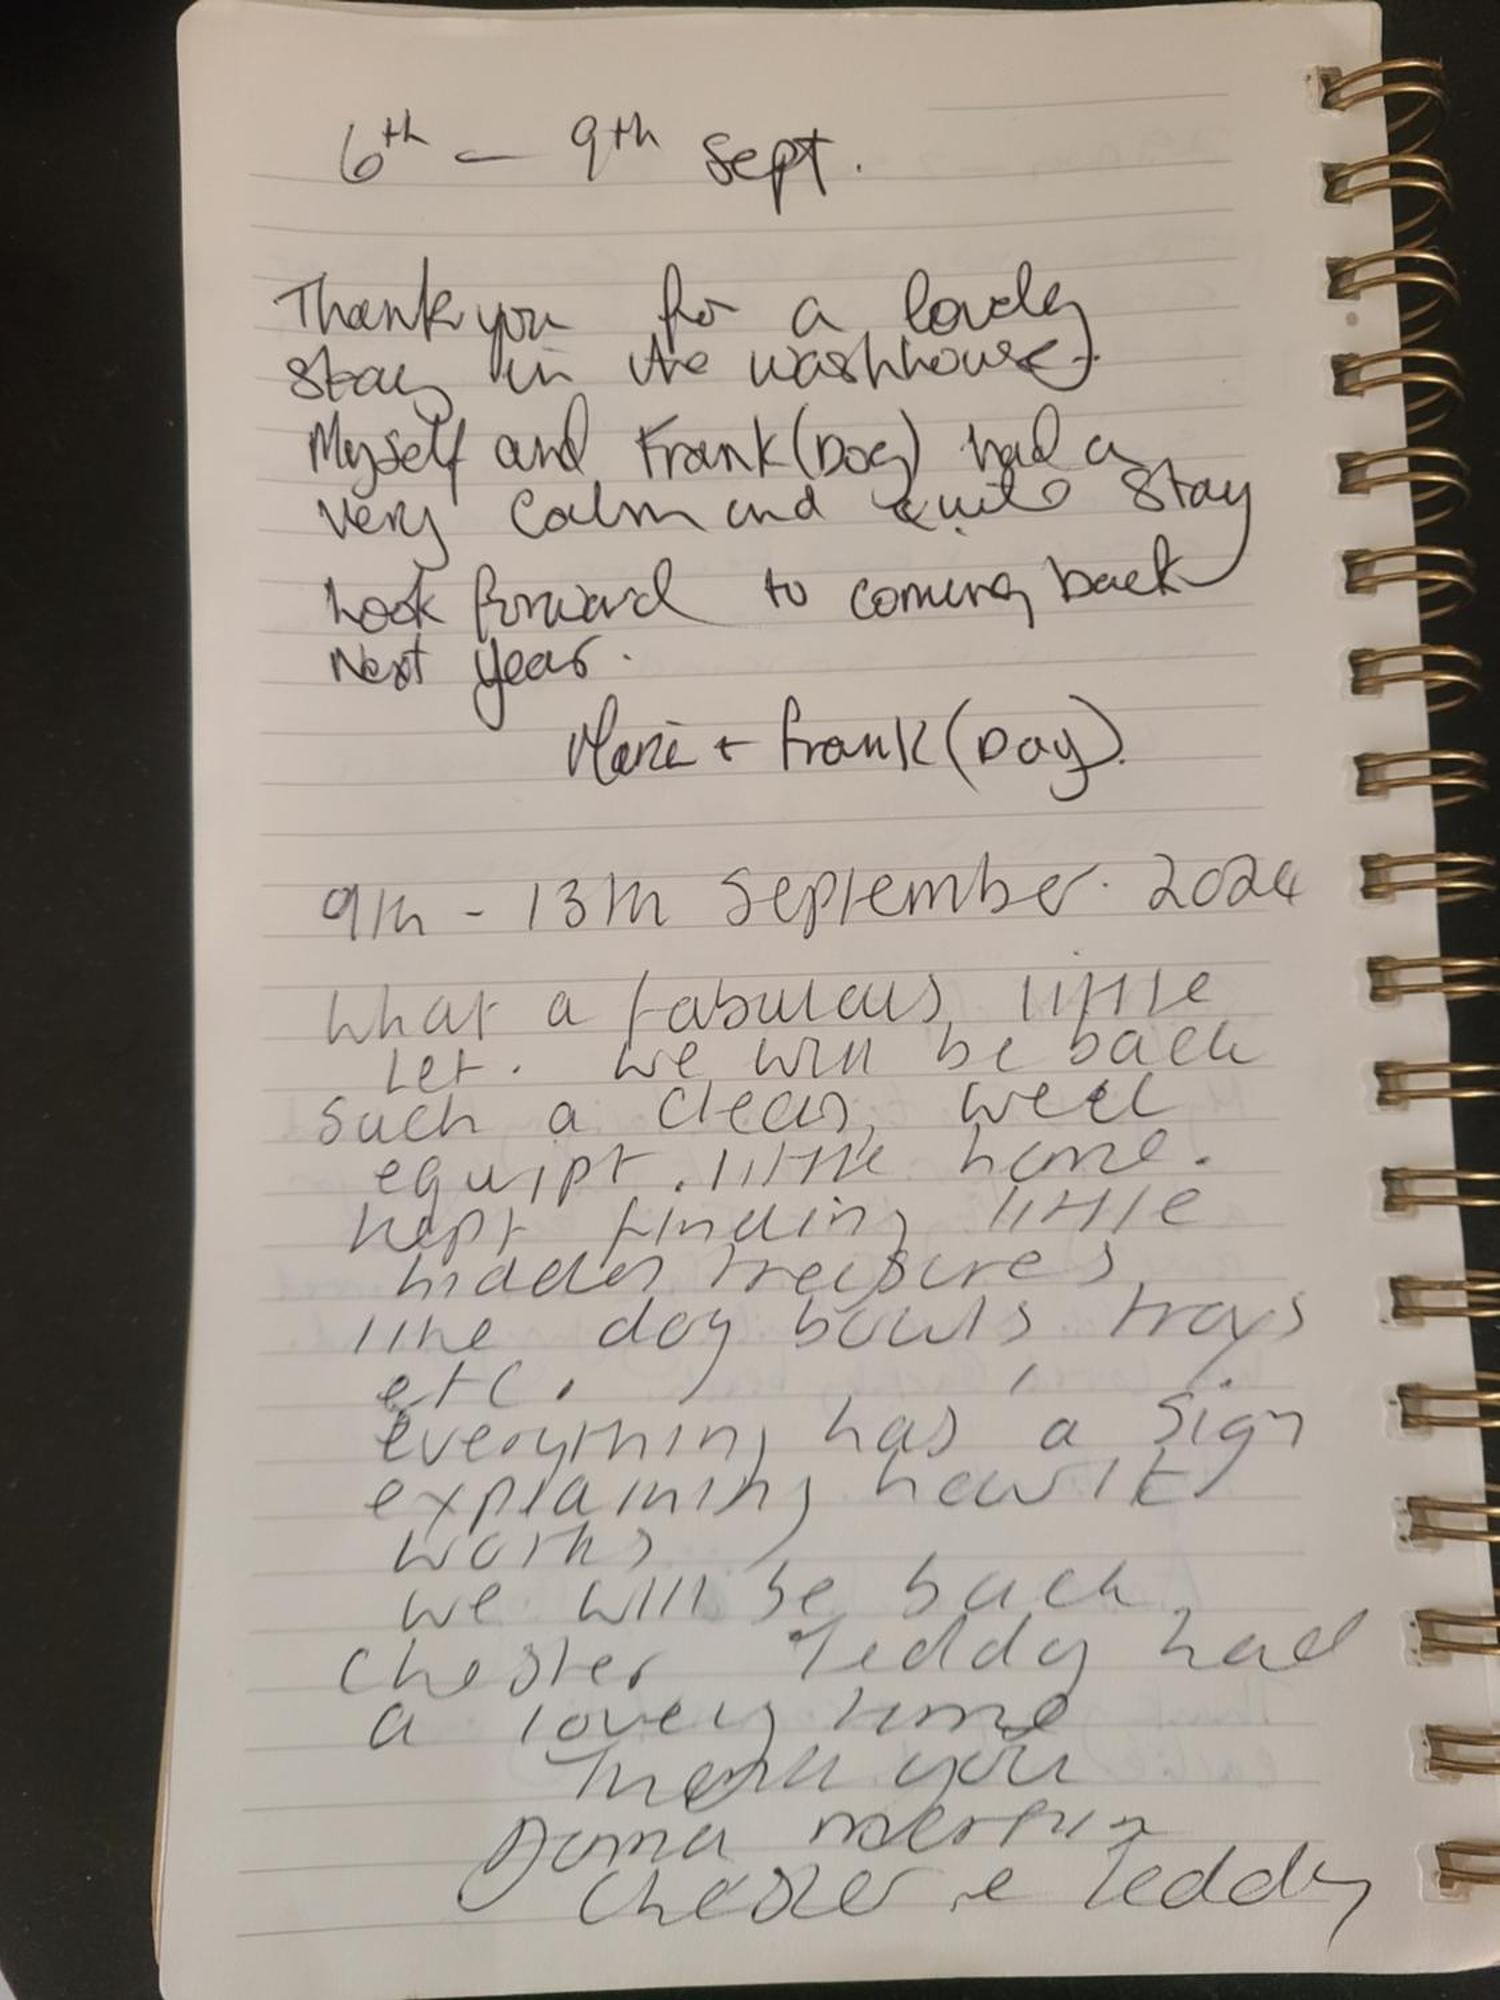 6th - 9th Sept.
Thank you for a lovely
stay in the washhouse.
Myself and Frank (Dog) had a
very calm and quite stay
Look forward to coming back
Next year.
Marie + Frank (Dog).
9th - 13th September. 2024
What a fabulous little
Let. we will be back
such a clean, well
equipt. little home.
kept finding little
hidden treasures,
like dog bowls trays
etc.
everything has a sign
explaining how it
works
we will be back.
Chester Teddy had
a lovely time
Thank you
Donna
Chester e Teddy